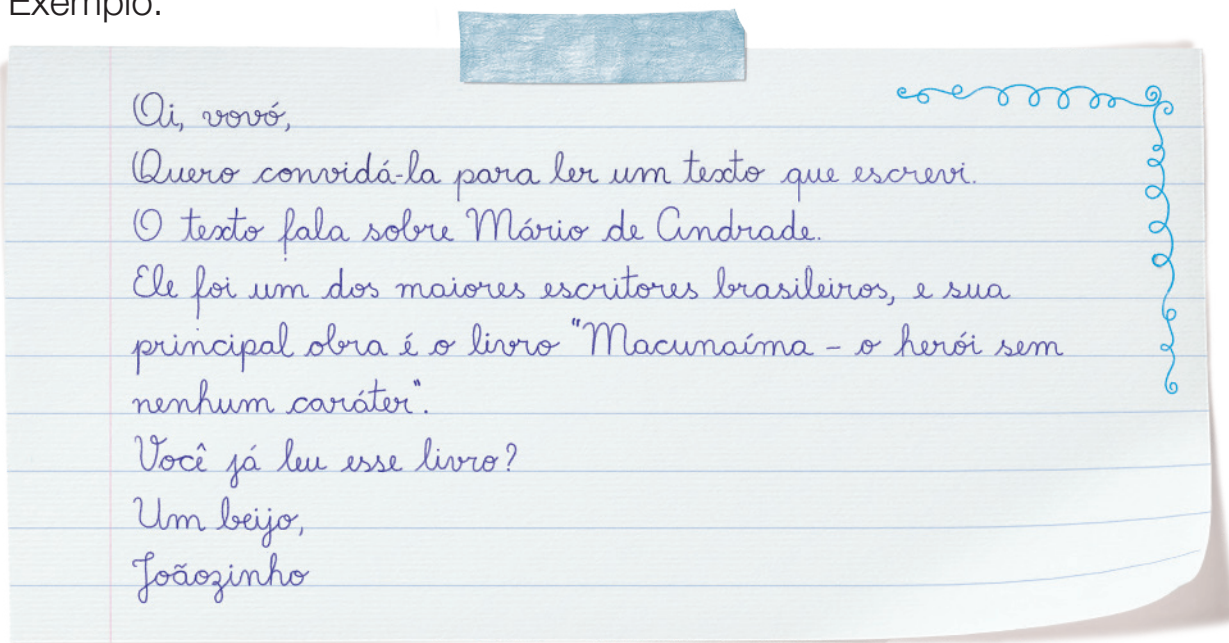 Exemplo:
Oi, vovó,
Quero convidá-la para ler um texto que escrevi.
O texto fala sobre Mário de Andrade.
Ele foi um dos maiores escritores brasileiros, e sua
principal obra é o livro "Macunaíma - o herói sem
nenhum caráter".
Você já leu esse livro?
Um beijo,
Joãozinho